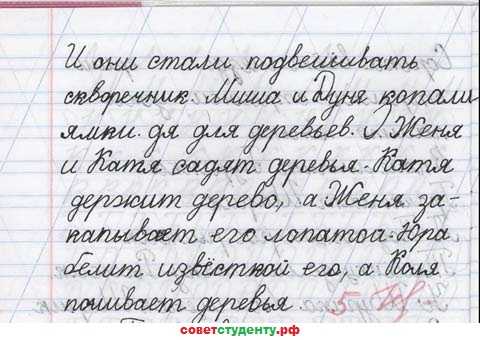 И они стали подвешивать
скворечник. Миша и Дуня копали
ямки дя для деревьев. Женя
и Катя садят деревья. Катя
держит дерево, а Женя за-
капывает его лопатоа. Юра
белит известкой его, а Коля
поливает деревья. 5
советстуденту.рф